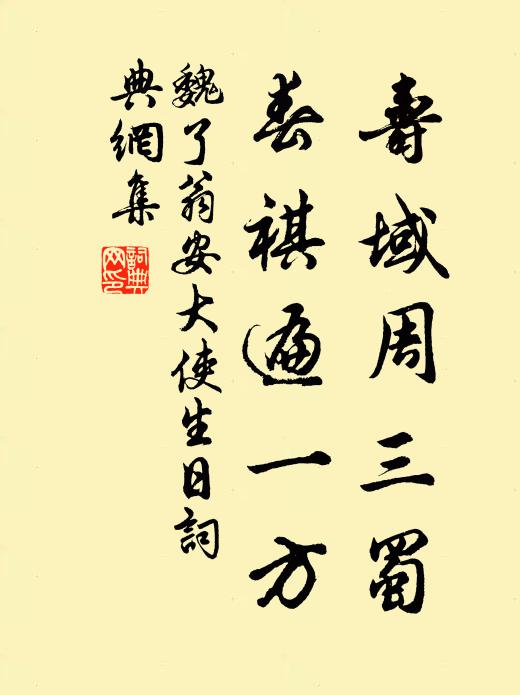 壽域周三蜀
春祺遍一方
魏了翁安大使生日詞
典網集
詞典
网印